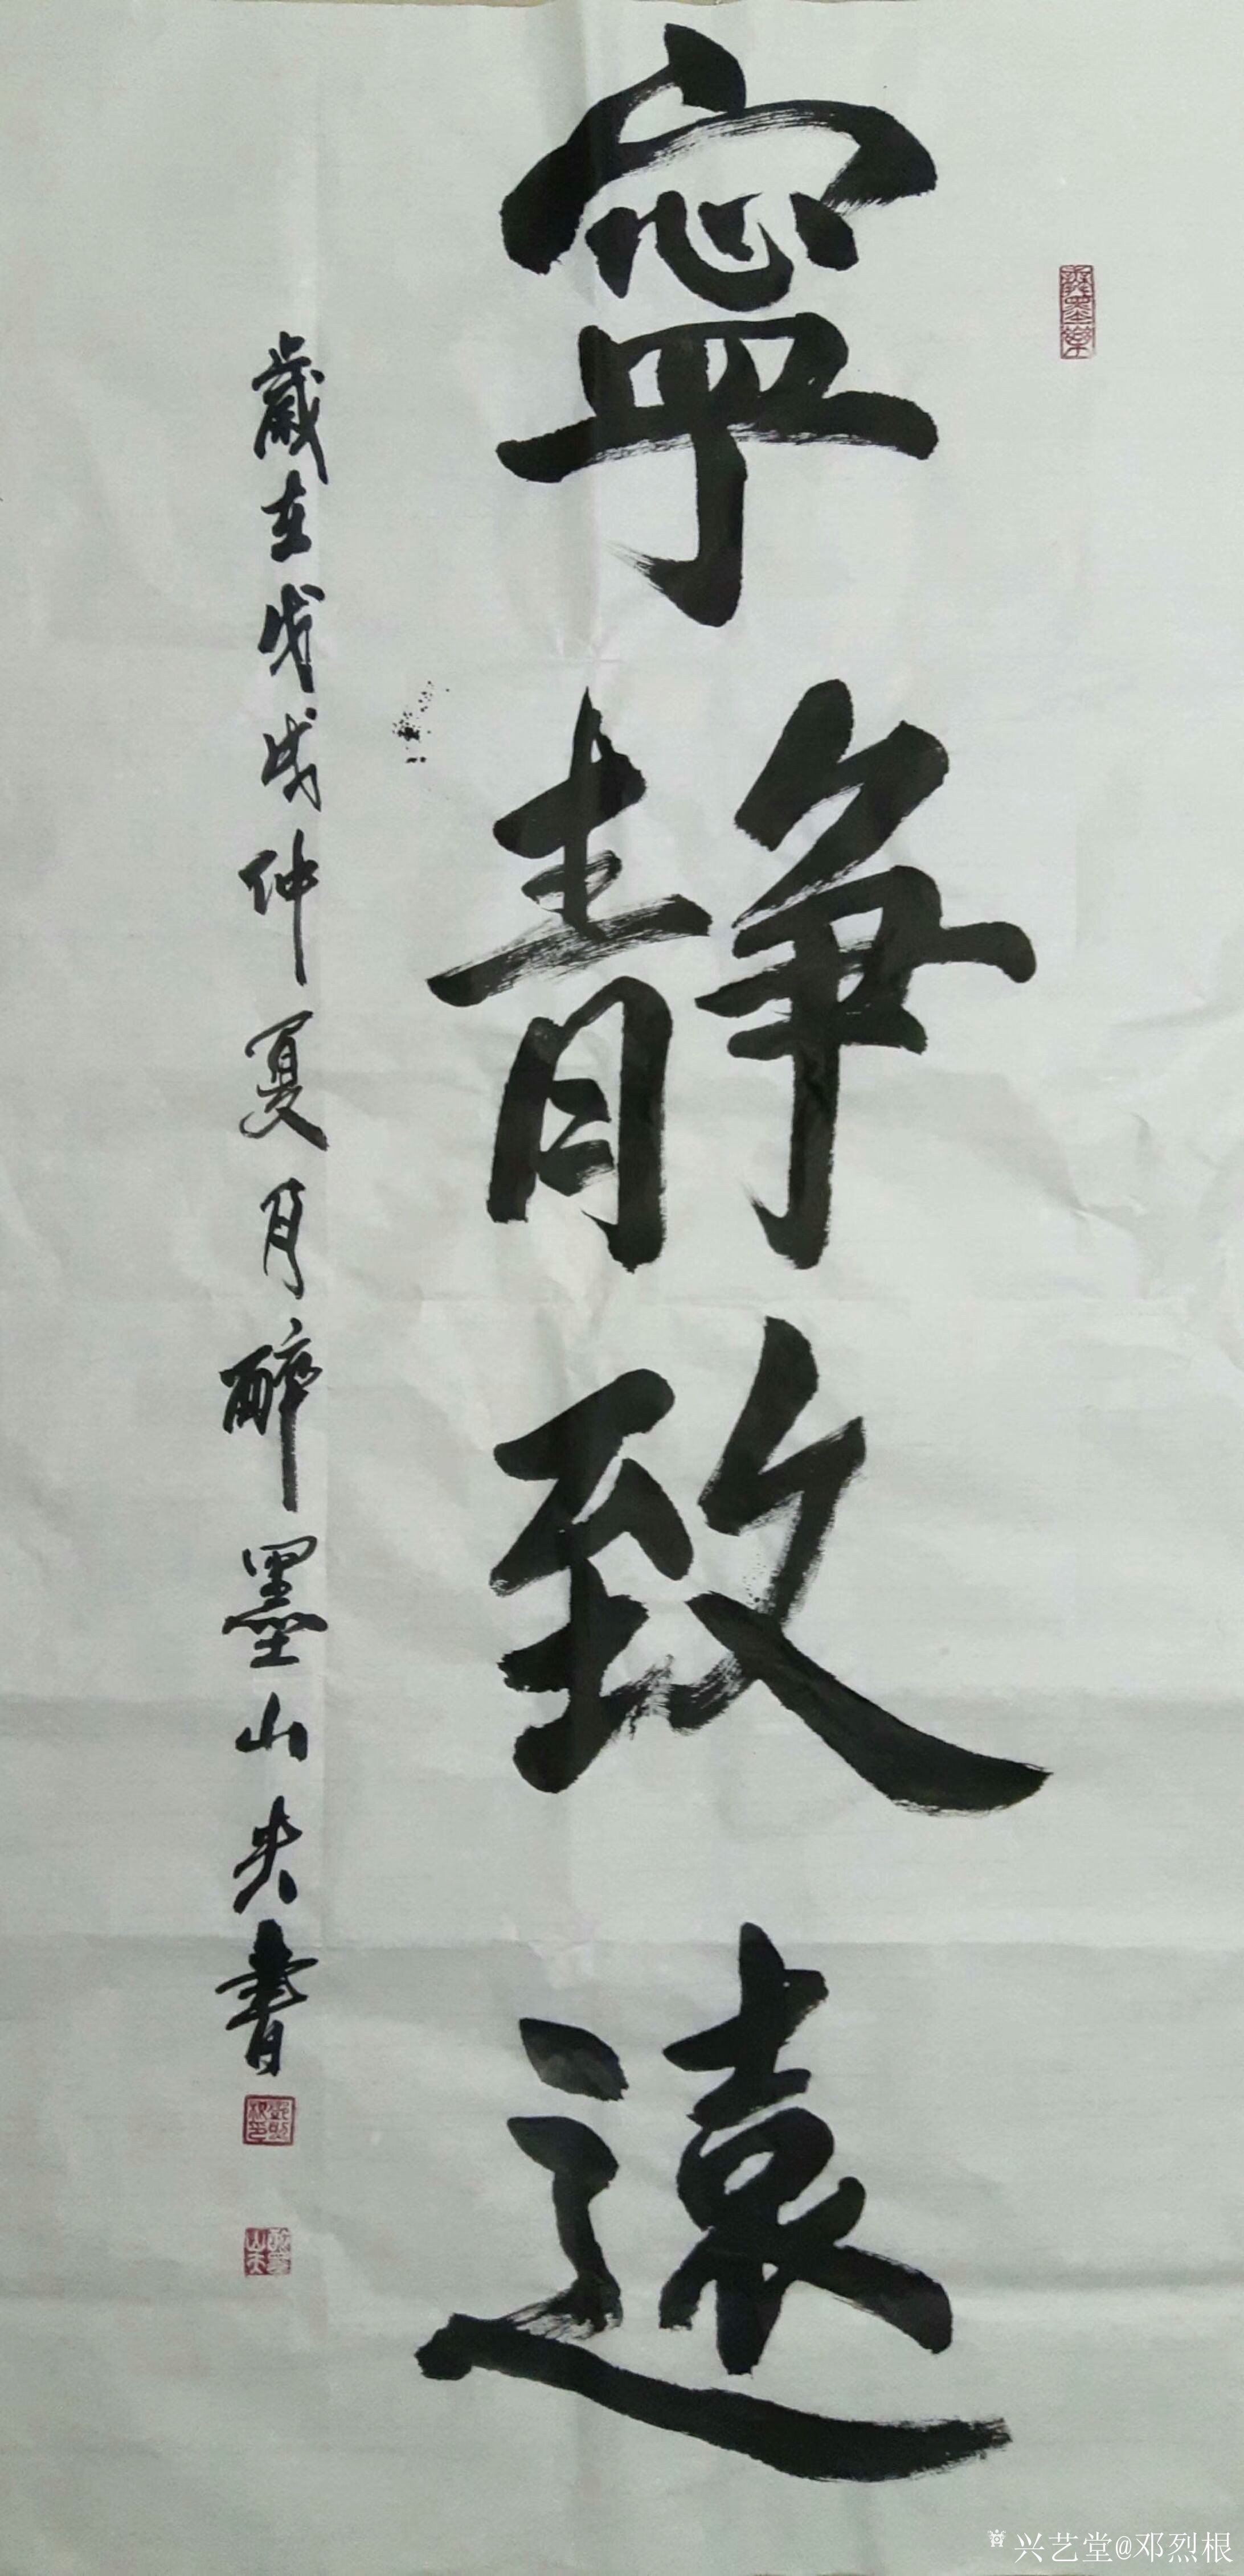 寧靜致遠
歲在戊戌仲夏月醉墨山夫書
兴艺堂@邓烈根